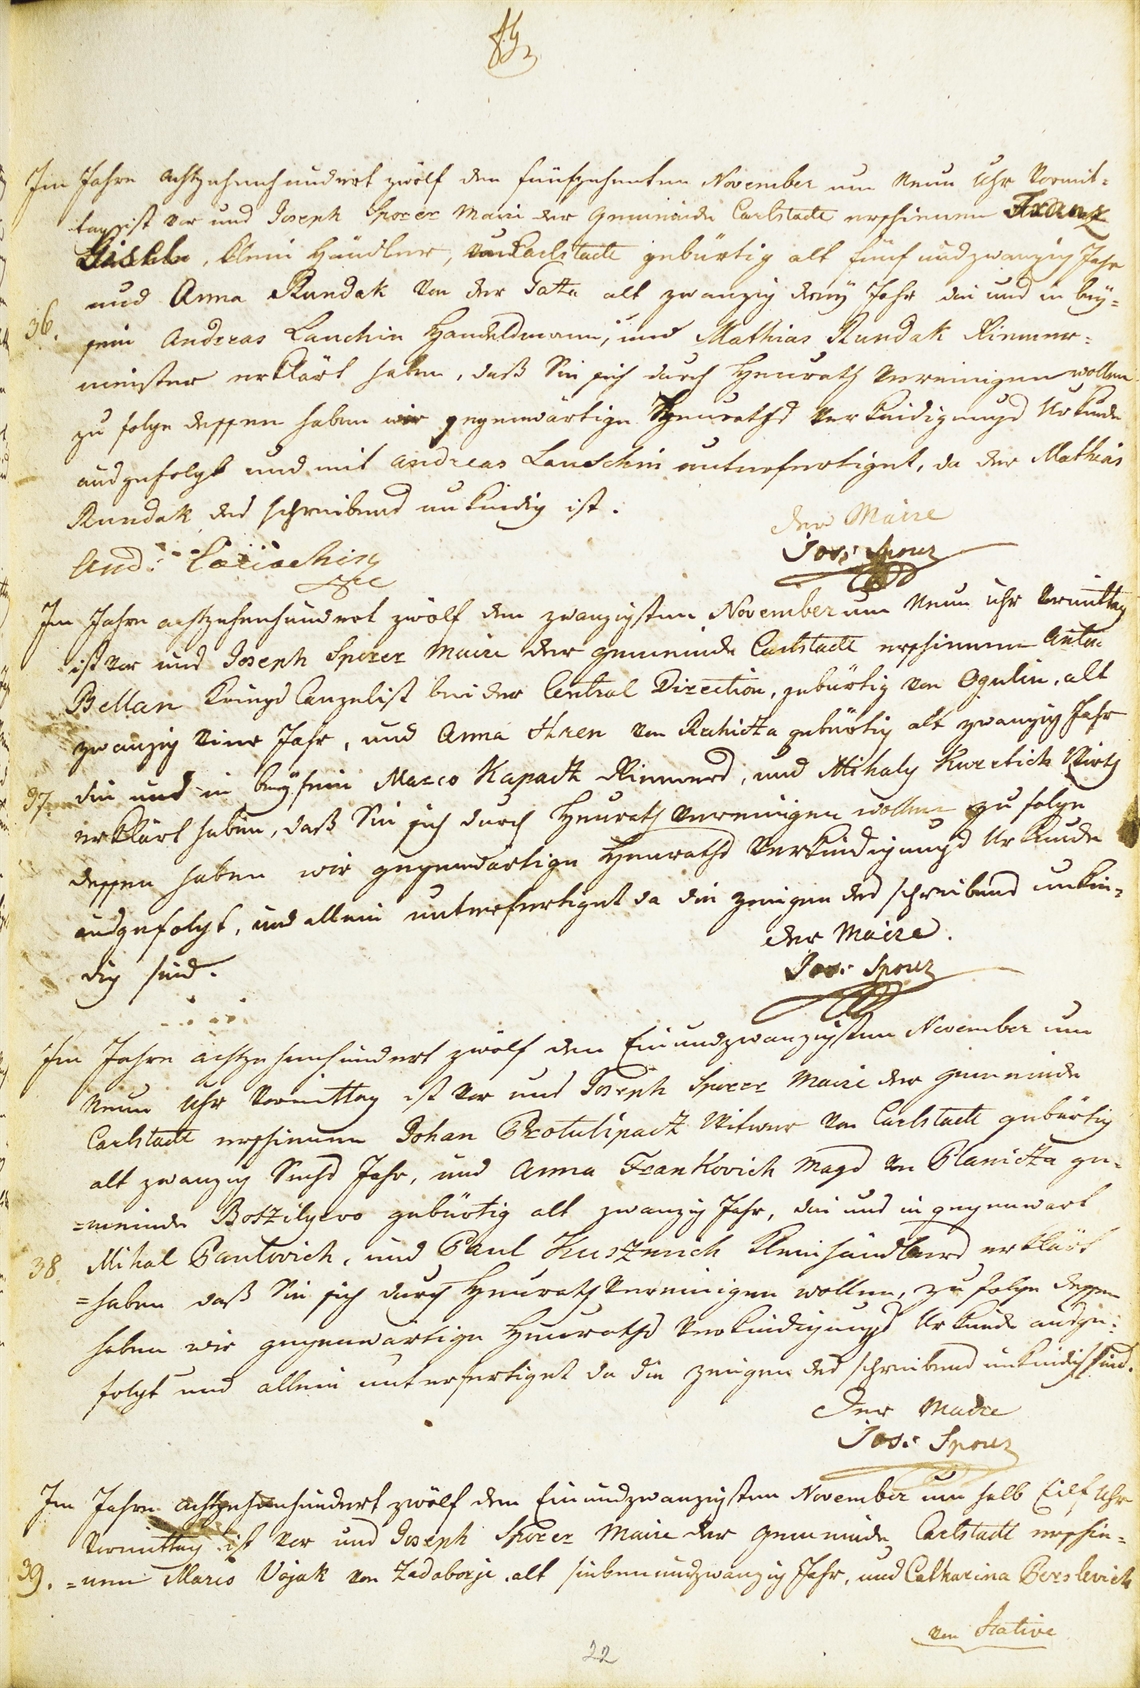 Im Jahre achtzehenhundert zwölf den fünfzehenten November um Neun Uhr Vormit-
tag ist vor uns Joseph Sporer Maire der Gemeinde Carlstadt erschienen Franz
klein Händler, von Karlstadt gebürtig alt fünf und zwanzig Jahr
und Anna Rundak von der alt zwanzig Jahr die uns in bey-
36. sein Andreas Lauschin Handelsmann, und Mathias Rundak Riemer-
meister erklärt haben, daß Sie sich durch Heurath Vereinigen wollen
zu folge dessen haben wir gegenwärtige Heuraths Verkündigungs Urkunde
ausgefolgt und mit Andreas Lauschin unterfertiget, da der Mathias
Rundak des schreibens unkündig ist.
der Maire
And: Lauschin
Jos: Sporer
Im Jahre achtzehenhundert zwölf den zwanzigsten November um Neun Uhr Vormittag
ist vor uns Joseph Sporer Maire der Gemeinde Carlstadt erschienen Anton
Bellan Kreigs Canzelist bei der Central Direction, gebürtig von Ogulin, alt
zwanzig Jahr, und Anna Hren von gebürtig alt zwanzig Jahr
37. die uns in beysein Marco Kapactz Riemers, und Mihaly Wirth
erklärt haben, daß Sie sich durch Heurath Vereinigen wollen zu folge
dessen haben wir gegenwärtige Heuraths Verkündigungs Urkunde
ausgefolgt, und allein unterfertiget da die zeugen des schreibens unkün-
dig sind.
der Maire.
Jos: Sporer
Im Jahre achtzehenhundert zwölf den Ein und zwanzigsten November um
Neun Uhr Vormittag ist vor uns Joseph Sporer Maire der Gemeinde
Carlstadt erschienen Johan Protulipactz Witwer von Carlstadt gebürtig
alt zwanzig Sechs Jahr, und Anna Frankovich Magd von Planitza ge-
=meinde Boszilyevo gebürtig alt zwanzig Jahr, die uns in gegenwart
38. Mihal Pavlovich, und Paul Kleinhändlers erklärt
=haben daß Sie sich durch Heurath Vereinigen wollen, zu folge dessen
haben wir gegenwärtige Heuraths Verkündigungs Urkunde ausge-
folgt und allein unterfertiget da die zeugen des schreibens unkündig sind.
Der Maire
Jos: Sporer
Im Jahre achtzehenhundert zwölf den Ein und zwanzigsten November um halb Eilf Uhr
Vormittag ist vor uns Joseph Sporer Maire der Gemeinde Carlstadt erschie-
39. =nen Marco Vojak von Zadoborje alt sieben und zwanzig Jahr, und Catharina Berslevich
von Stative
22